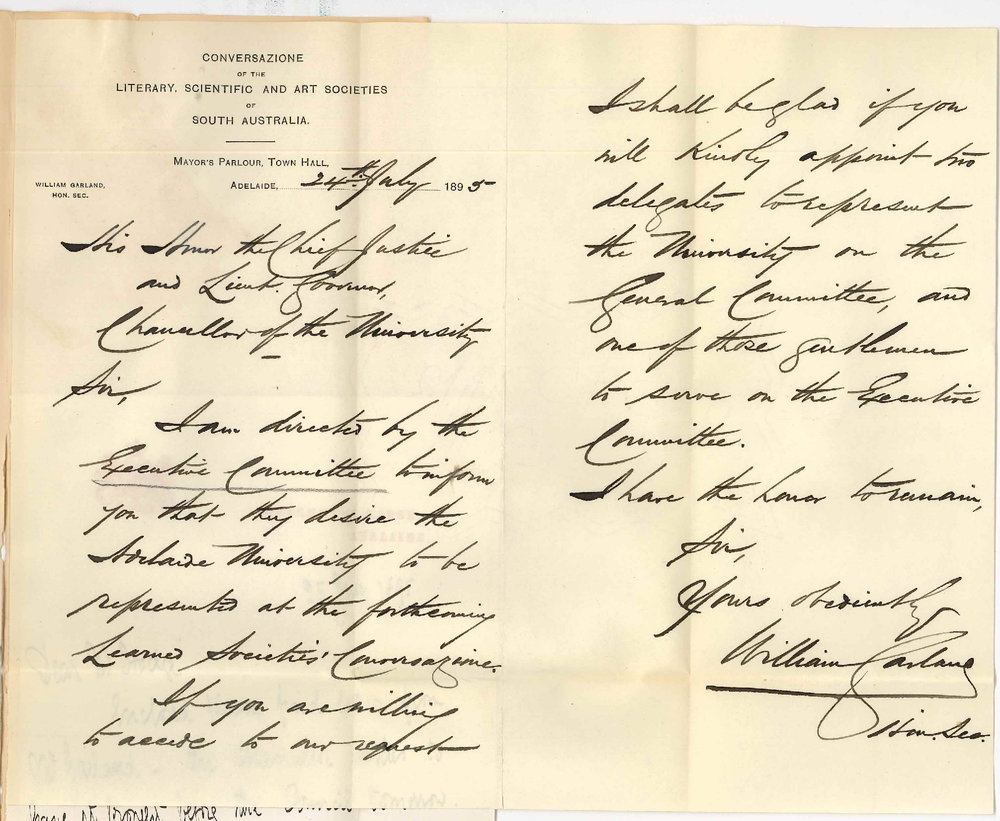 CONVERSAZIONE
OF THE
LITERARY, SCIENTIFIC AND ART SOCIETIES
OF
SOUTH AUSTRALIA.
MAYOR'S PARLOUR, TOWN HALL,
WILLIAM GARLAND,
HON. SEC.
ADELAIDE, 24th July 1895
His Honor the Chief Justice
and Lieut. Governor,
Chancellor of the University
Sir,
I am directed by the
Executive Committee to inform
you that they desire the
Adelaide University to be
represented at the forthcoming
Learned Societies' Conversazione.
If you are willing
to accede to our request
I shall be glad if you
will kindly appoint two
delegates to represent
the University on the
General Committee, and
one of those gentlemen
to serve on the Executive
Committee.
I have the honor to remain,
Sir,
Yours obediently
William Garland
Hon. Sec.
before the